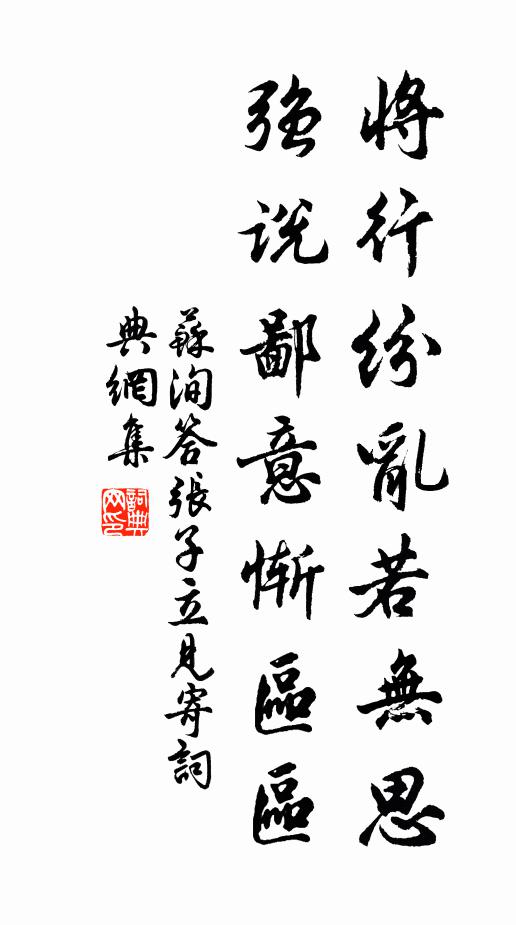 將行紛亂若無思
强說鄙意慚區區
蘇洵答張子立見寄詞
典網集
詞典网印